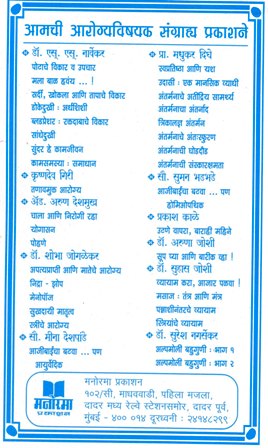 आमची आरोग्यविषयक संग्राह्य प्रकाशने
* डॉ. एस्. एस्. नार्वेकर
पोटाचे विकार व उपचार
मला बाळ हवंय ...!
सर्दी, खोकला आणि तापाचे विकार
डोकेदुखी : अर्धशिशी
ब्लडप्रेशर : रक्तदाबाचे विकार
सांधेदुखी
सुंदर हे कामजीवन
कामसमस्या : समाधान
* कृष्णदेव गिरी
तणावमुक्त आरोग्य
* ॲड. अरुण देशमुख
चाला आणि निरोगी रहा
योगासन
पोहणे
* डॉ. शोभा जोगळेकर
अपत्यप्राप्ती आणि मातेचे आरोग्य
निद्रा - झोप
मेनोपॉज
सुखदायी मातृत्व
स्त्रीचे आरोग्य
* सौ. मीना देशपांडे
आजीबाईचा बटवा ... पण
आयुर्वेदिक
* प्रा. मधुकर दिघे
स्वप्रतिष्ठा आणि यश
उदासी : एक मानसिक व्याधी
अंतर्मनाचे अतींद्रिय सामर्थ्य
अंतर्मनाचा अंतर्नाद
त्रिकालज्ञ अंतर्मन
अंतर्मनाचे अंतःस्फुरण
अंतर्मनाची घोडदौड
अंतर्मनाची संरक्षणक्षमता
* सौ. सुमन भडभडे
आजीबाईचा बटवा ... पण
होमिओपथिक
* प्रकाश काळे
उटणे वापरा, बाराही महिने
* डॉ. अरुणा जोशी
सूप प्या आणि बारीक व्हा !
* डॉ. सुहास जोशी
व्यायाम करा, आजार पळवा !
मसाज : तंत्र आणि मंत्र
पन्नाशीनंतरचे व्यायाम
स्त्रियांचे व्यायाम
* डॉ. सुरेश नगर्सेकर
अल्पमोली बहुगुणी : भाग १
अल्पमोली बहुगुणी : भाग २
मनोरमा
मनोरमा प्रकाशन
१०२/सी, माधववाडी, पहिला मजला,
दादर मध्य रेल्वे स्टेशनसमोर, दादर पूर्व,
मुंबई - ४०० ०१४ दूरध्वनी : २४१४८२९९